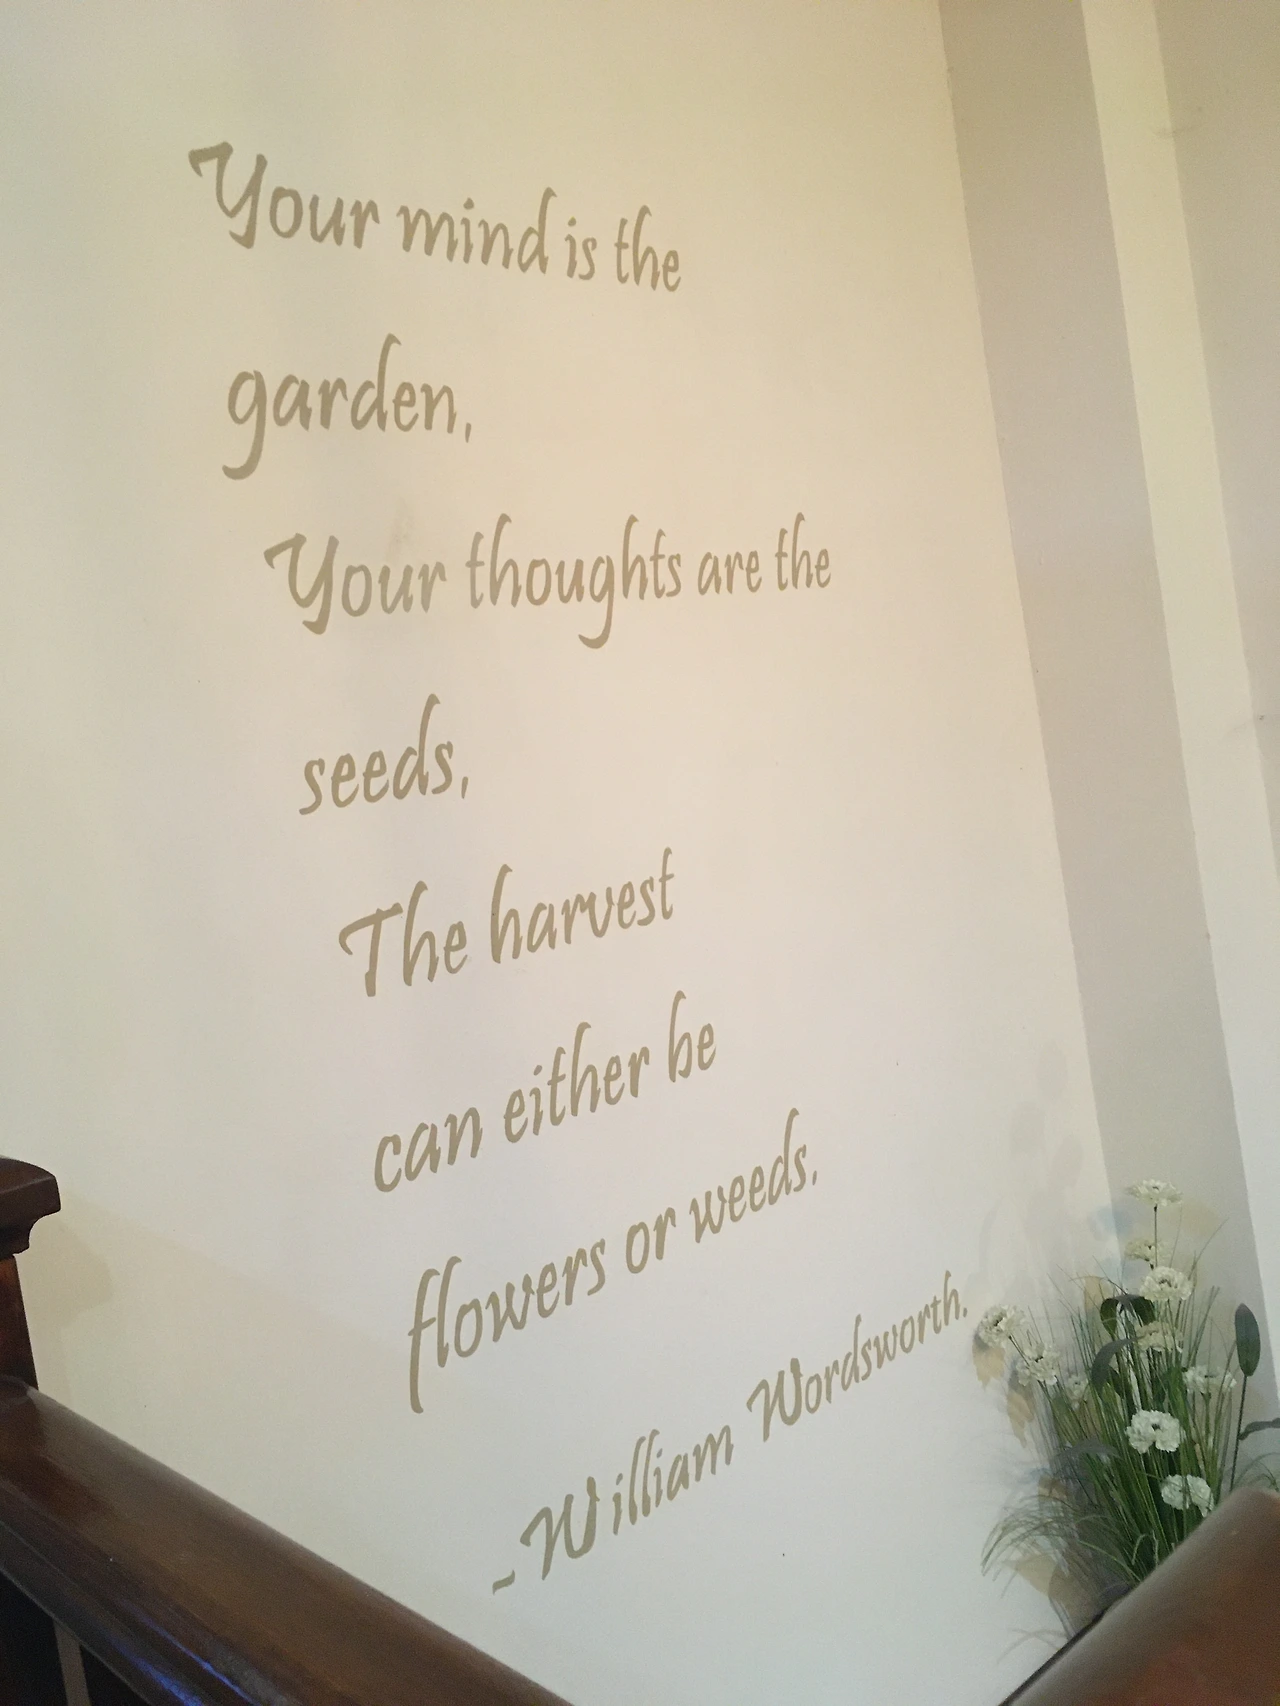 Your mind is the
garden,
Your thoughts are the
seeds,
The harvest
can either be
flowers or weeds.
~William Wordsworth.